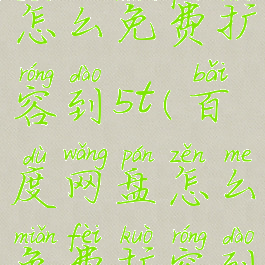 怎么免费扩
róng dào bǎi
容到5t(百
dù wǎng pán zěn me
度网盘怎么
miǎn fèi kuò róng dào
免费扩容到